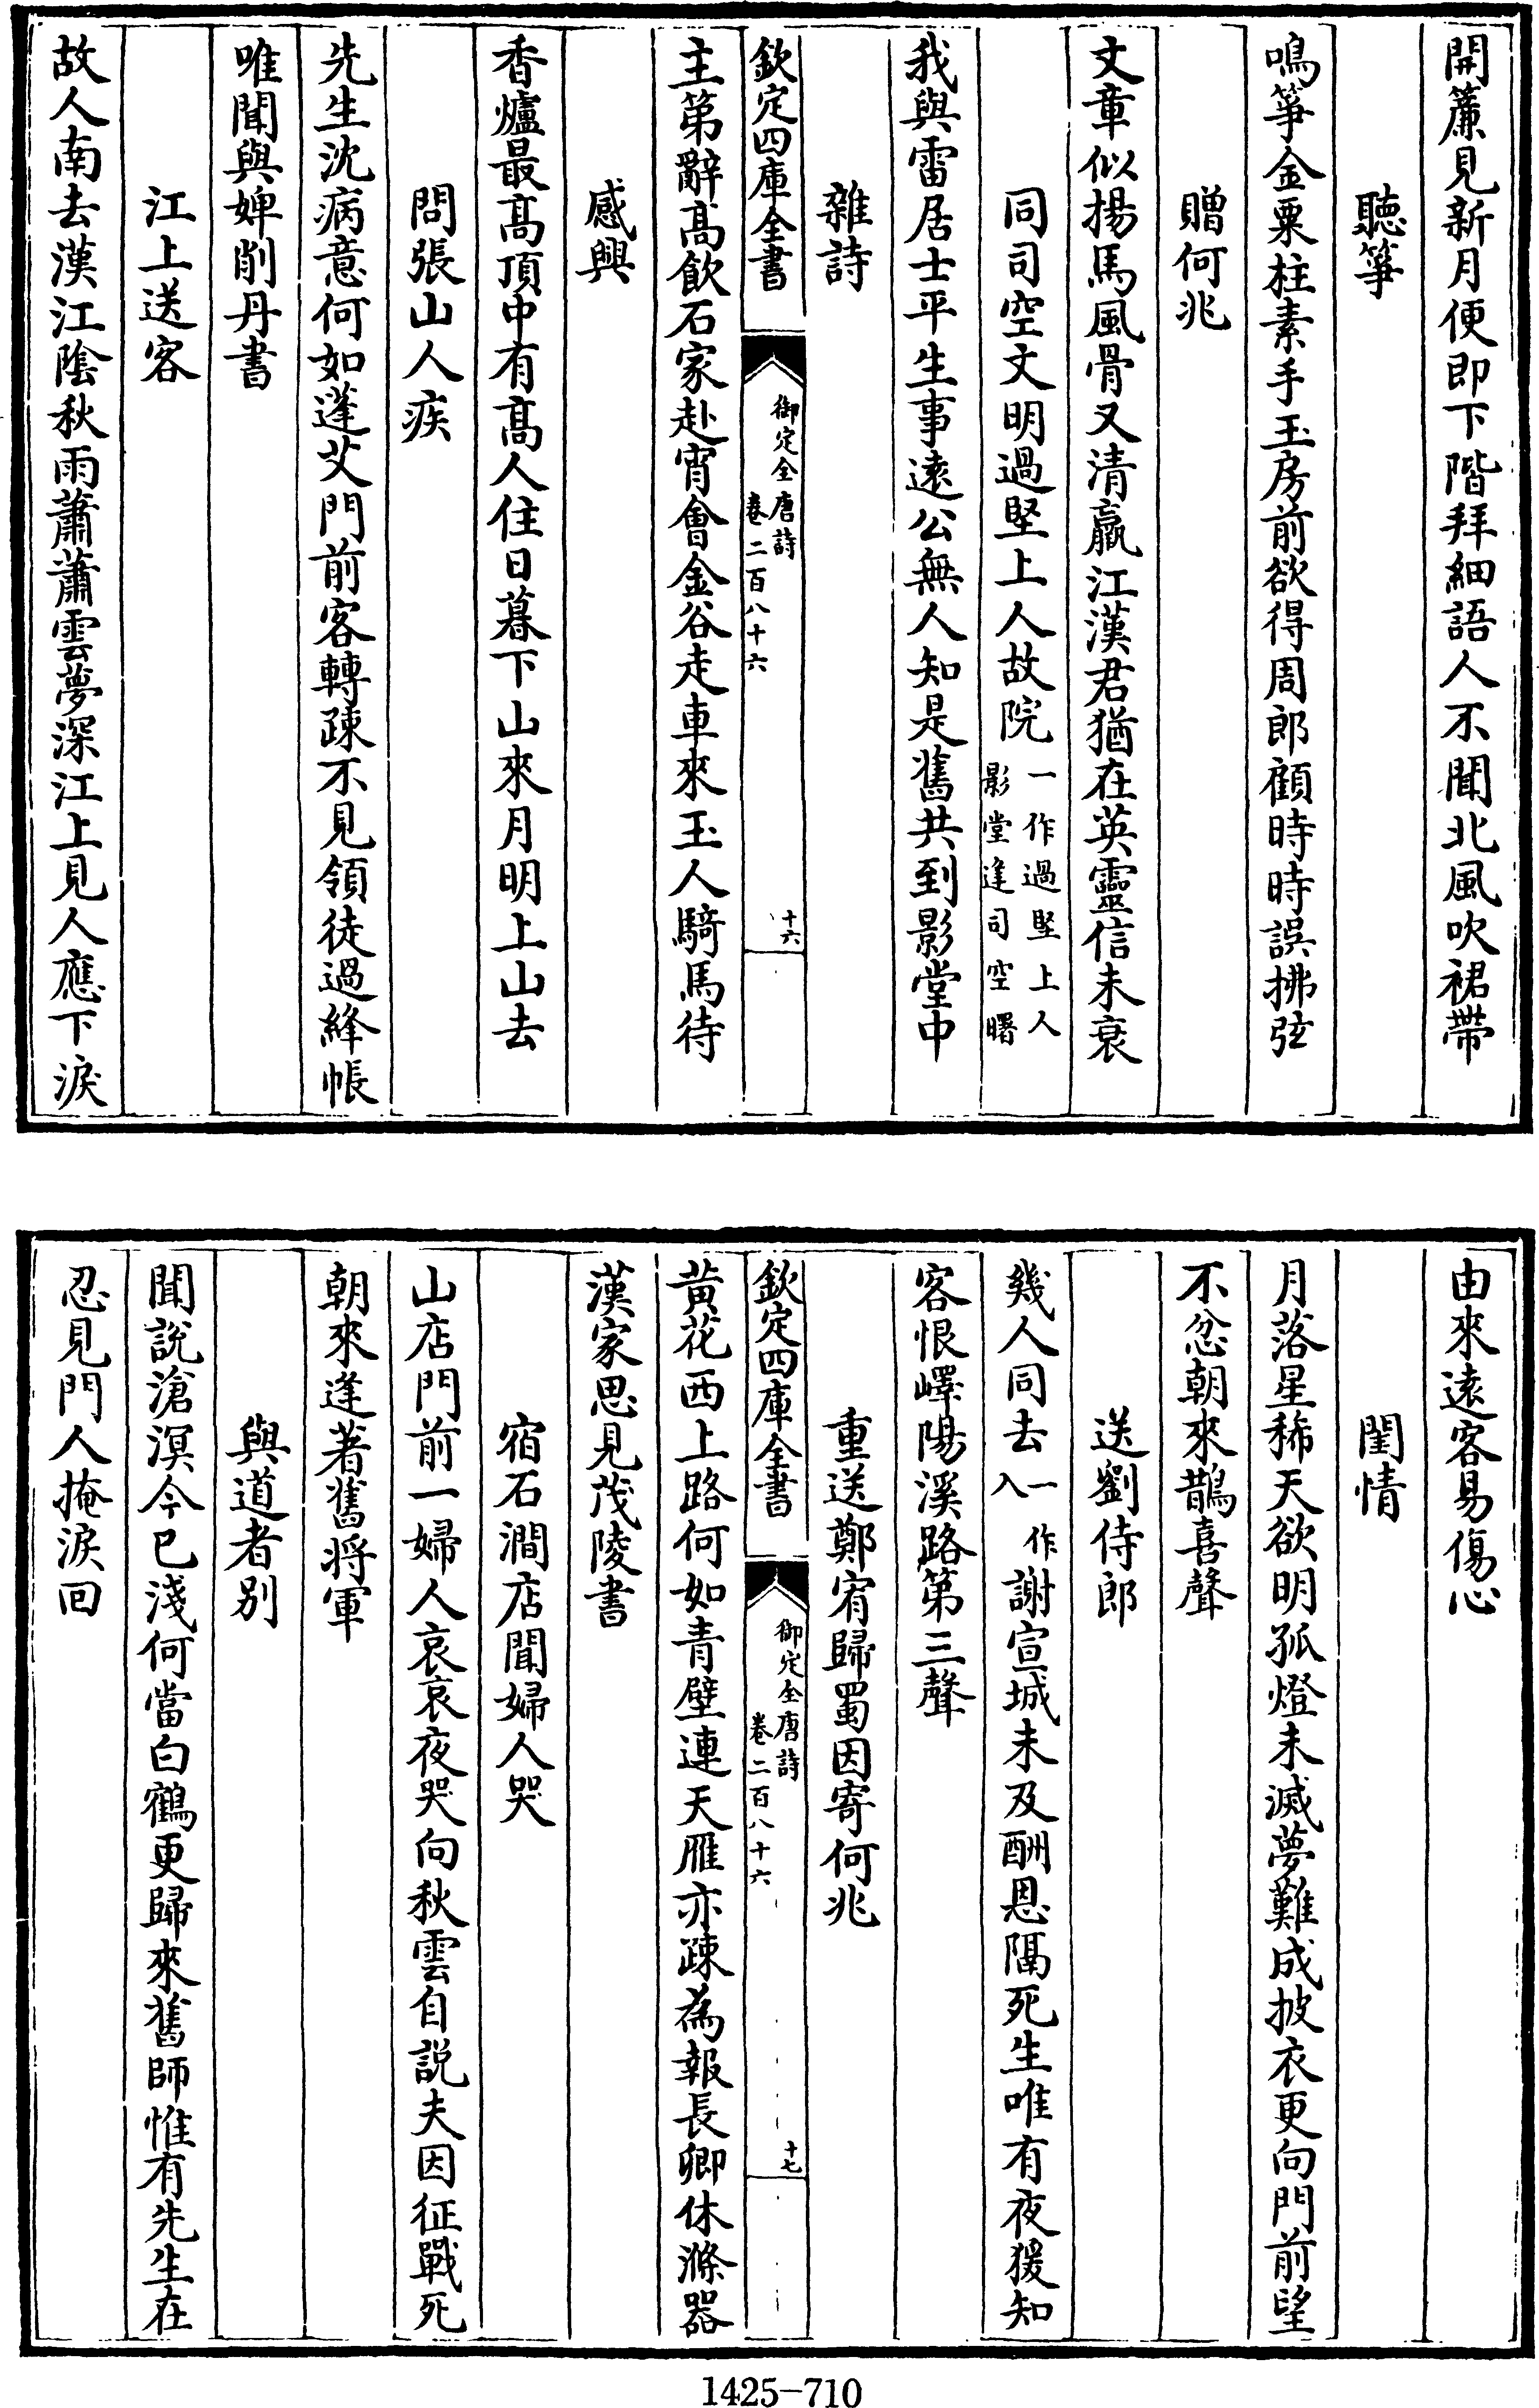 開簾見新月便即下階拜細語人不聞北風吹裙帶
聽箏
鳴箏金粟柱素手玉房前欲得周郎顧時時誤拂弦
贈何兆
文章似揚馬風骨又清羸江漢君猶在英靈信未衰
同司空文明過堅上人故院一作過堅上人影堂逢司空曙
我與雷居士平生事遠公無人知是舊共到影堂中
雜詩
欽定四庫全書
御定全唐詩
卷二百八十六
十六
主第辭髙飲石家赴宵會金谷走車來玉人騎馬待
感興
香爐最髙頂中有髙人住日暮下山來月明上山去
問張山人疾
先生沈病意何如蓬艾門前客轉疎不見領徒過絳帳
唯聞與婢削丹書
江上送客
故人南去漢江陰秋雨蕭蕭雲夢深江上見人應下淚
由來遠客易傷心
閨情
月落星稀天欲明孤燈未滅夢難成披衣更向門前望
不忿朝來鵲喜聲
送劉侍郎
幾人同去一作入謝宣城未及酬恩隔死生唯有夜猨知
客恨嶧陽溪路第三聲
重送鄭宥歸蜀因寄何兆
欽定四庫全書
御定全唐詩
卷二百八十六
十七
黄花西上路何如青壁連天雁亦疎為報長卿休滌器
漢家思見茂陵書
宿石澗店聞婦人哭
山店門前一婦人哀哀夜哭向秋雲自説夫因征戰死
朝來逢著舊將軍
與道者别
聞説滄溟今已淺何當白鶴更歸來舊師惟有先生在
忍見門人掩淚回
1425-710